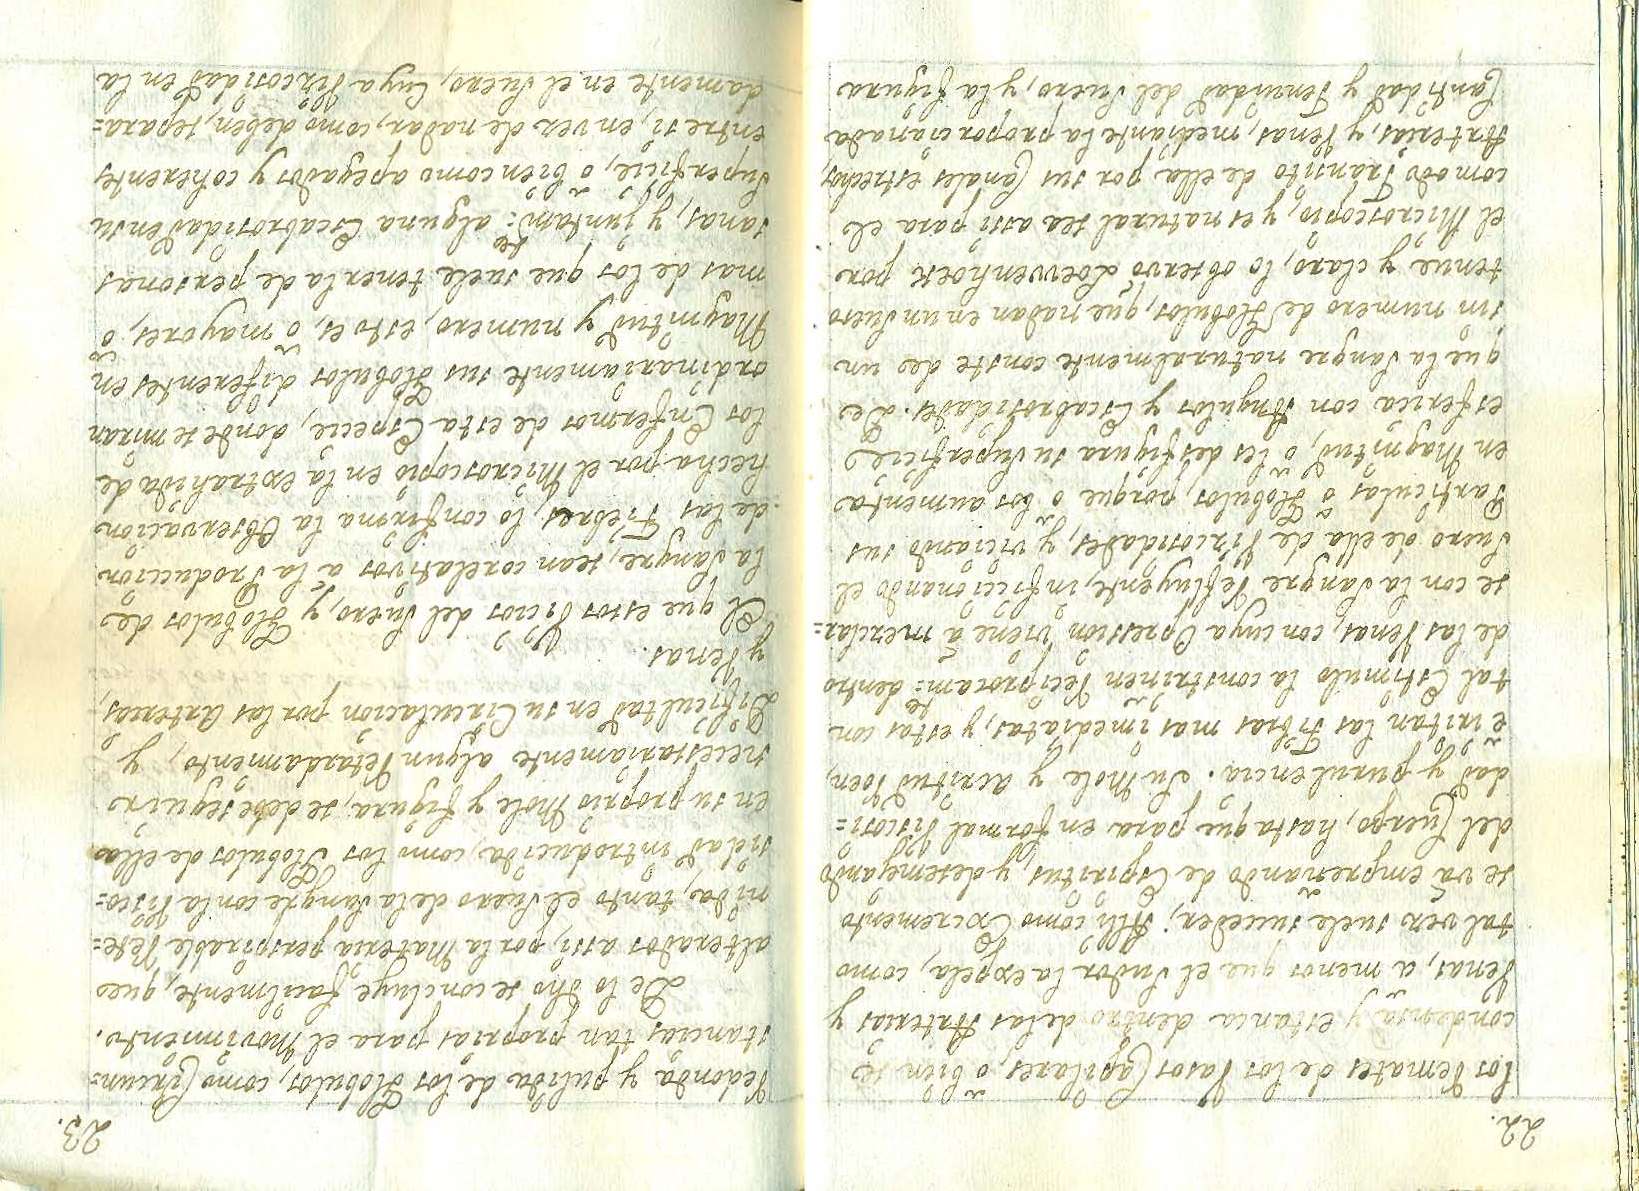 22.
los remates de los Vasos Capilares, ò bien se
condensa y estanca dentro de las Arterias y
Venas, a menos que el Sudor la expela, como
tal vez suele suceder; Alli como Excremento
se va empreñando de Espiritus, y desemejando
del Cuerpo, hasta que para en formal Viscosi=
dad y purulencia. Su Mole y Acritud
è irritan las Fibras mas imediatas, y estas con
tal Estimulo la constriñen reciprocam.te dentro
de las Venas, con cuya Opression viene à mezclar=
se con la Sangre refluyente, inficcionando el
Suero de ella de Viscosidades, y viciando sus
Particulas ò Globulos, porque ò los aumenta
en Magnitud, ò les desfigura su Superficie
esferica con Angulos y Escabrosidades. De
que la Sangre naturalmente conste de un
sin numero de Globulos, que nadan en un Suero
tenue y claro, lo observò Loevvenhoek por
el Microscopio, y es natural sea assi para el
comodo Transito de ella por sus Canales estrechos,
Arterias, y Venas, mediante la proporcionada
Cantidad y Tenuidad del Suero, y la figura
23.
redonda y pulida de los Globulos, como Circun=
stancias tan proprias para el Movimiento.
De lo dho se concluye facilmente, que
alterados assi, por la Materia perspirable rete=
nida, tanto el Suero de la Sangre con la Visco=
sidad introducida, como los Globulos de ella
en su proprio Mole y figura, se debe seguir
necessariamente algun retardamento, y
Dificultad en su Circulacion por las Arterias,
y Venas.
El que estos Vicios del Suero, y Globulos de
la Sangre, sean corelativos à la Produccion
de las Fiebres, lo confirma la Observacion
hecha por el Microscopio en la extrahida de
los Enfermos de esta Especie, donde se miran
ordinariamente sus Globulos diferentes en
Magnitud y numero, esto es, ò mayores, ò
mas de los que suele tenerla de personas
sanas, y juntam.te alguna Escabrosidad en su
Superficie, ò bien como apegados y coherentes
entre si, en vez de nadar, como deben, separa=
damente en el Suero, Cuya Viscosidad en la